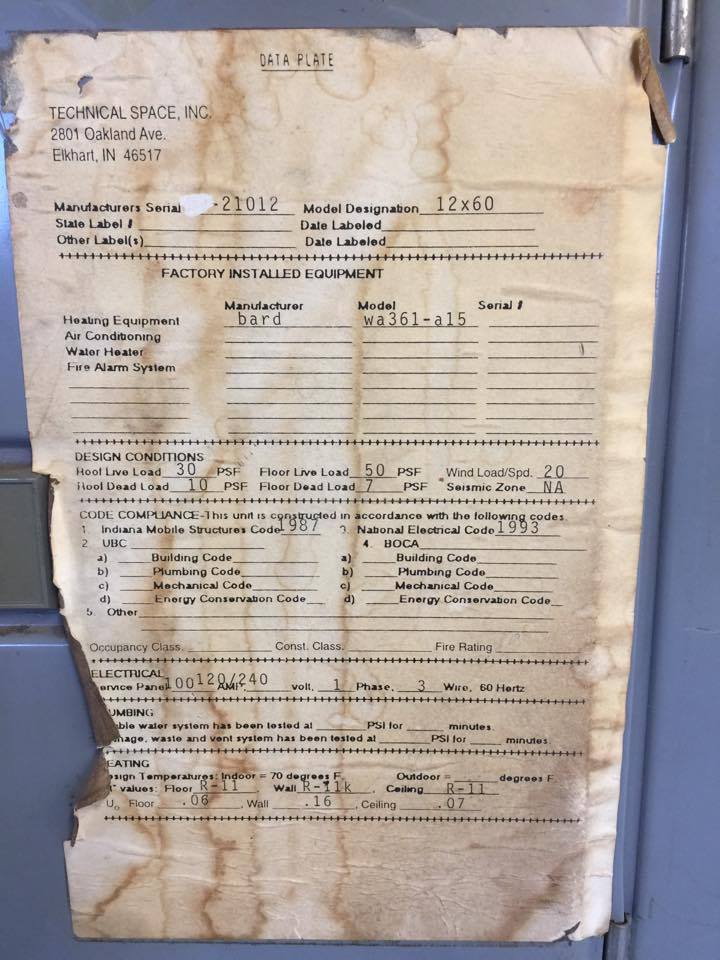 DATA PLATE
TECHNICAL SPACE, INC.
2801 Oakland Ave.
Elkhart, IN 46517
Manufacturers Serial -21012 Model Designation 12x60
State Label # Date Labeled
Other Label(s) Date Labeled
FACTORY INSTALLED EQUIPMENT
Manufacturer Model Serial #
Heating Equipment bard wa361-a15
Air Conditioning
Water Heater
Fire Alarm System
DESIGN CONDITIONS
Roof Live Load 30 PSF Floor Live Load 50 PSF Wind Load/Spd. 20
Roof Dead Load 10 PSF Floor Dead Load 7 PSF Seismic Zone NA
CODE COMPLIANCE-This unit is constructed in accordance with the following codes
1. Indiana Mobile Structures Code 1987 3. National Electrical Code 1993
2 UBC 4. BOCA
a) Building Code a) Building Code
b) Plumbing Code b) Plumbing Code
c) Mechanical Code c) Mechanical Code
d) Energy Conservation Code d) Energy Conservation Code
5. Other
Occupancy Class. Const. Class. Fire Rating
ELECTRICAL
ervice Panel 100 AMP. 120/240 volt, 1 Phase, 3 Wire, 60 Hertz
UMBING
ble water system has been tested at PSI for minutes.
nage, waste and vent system has been tested at PSI for minutes.
EATING
esign Temperatures: Indoor = 70 degrees F. Outdoor = degrees F.
values: Floor R-11, Wall R-11k, Ceiling R-11
Uo Floor .06, Wall .16, Ceiling .07